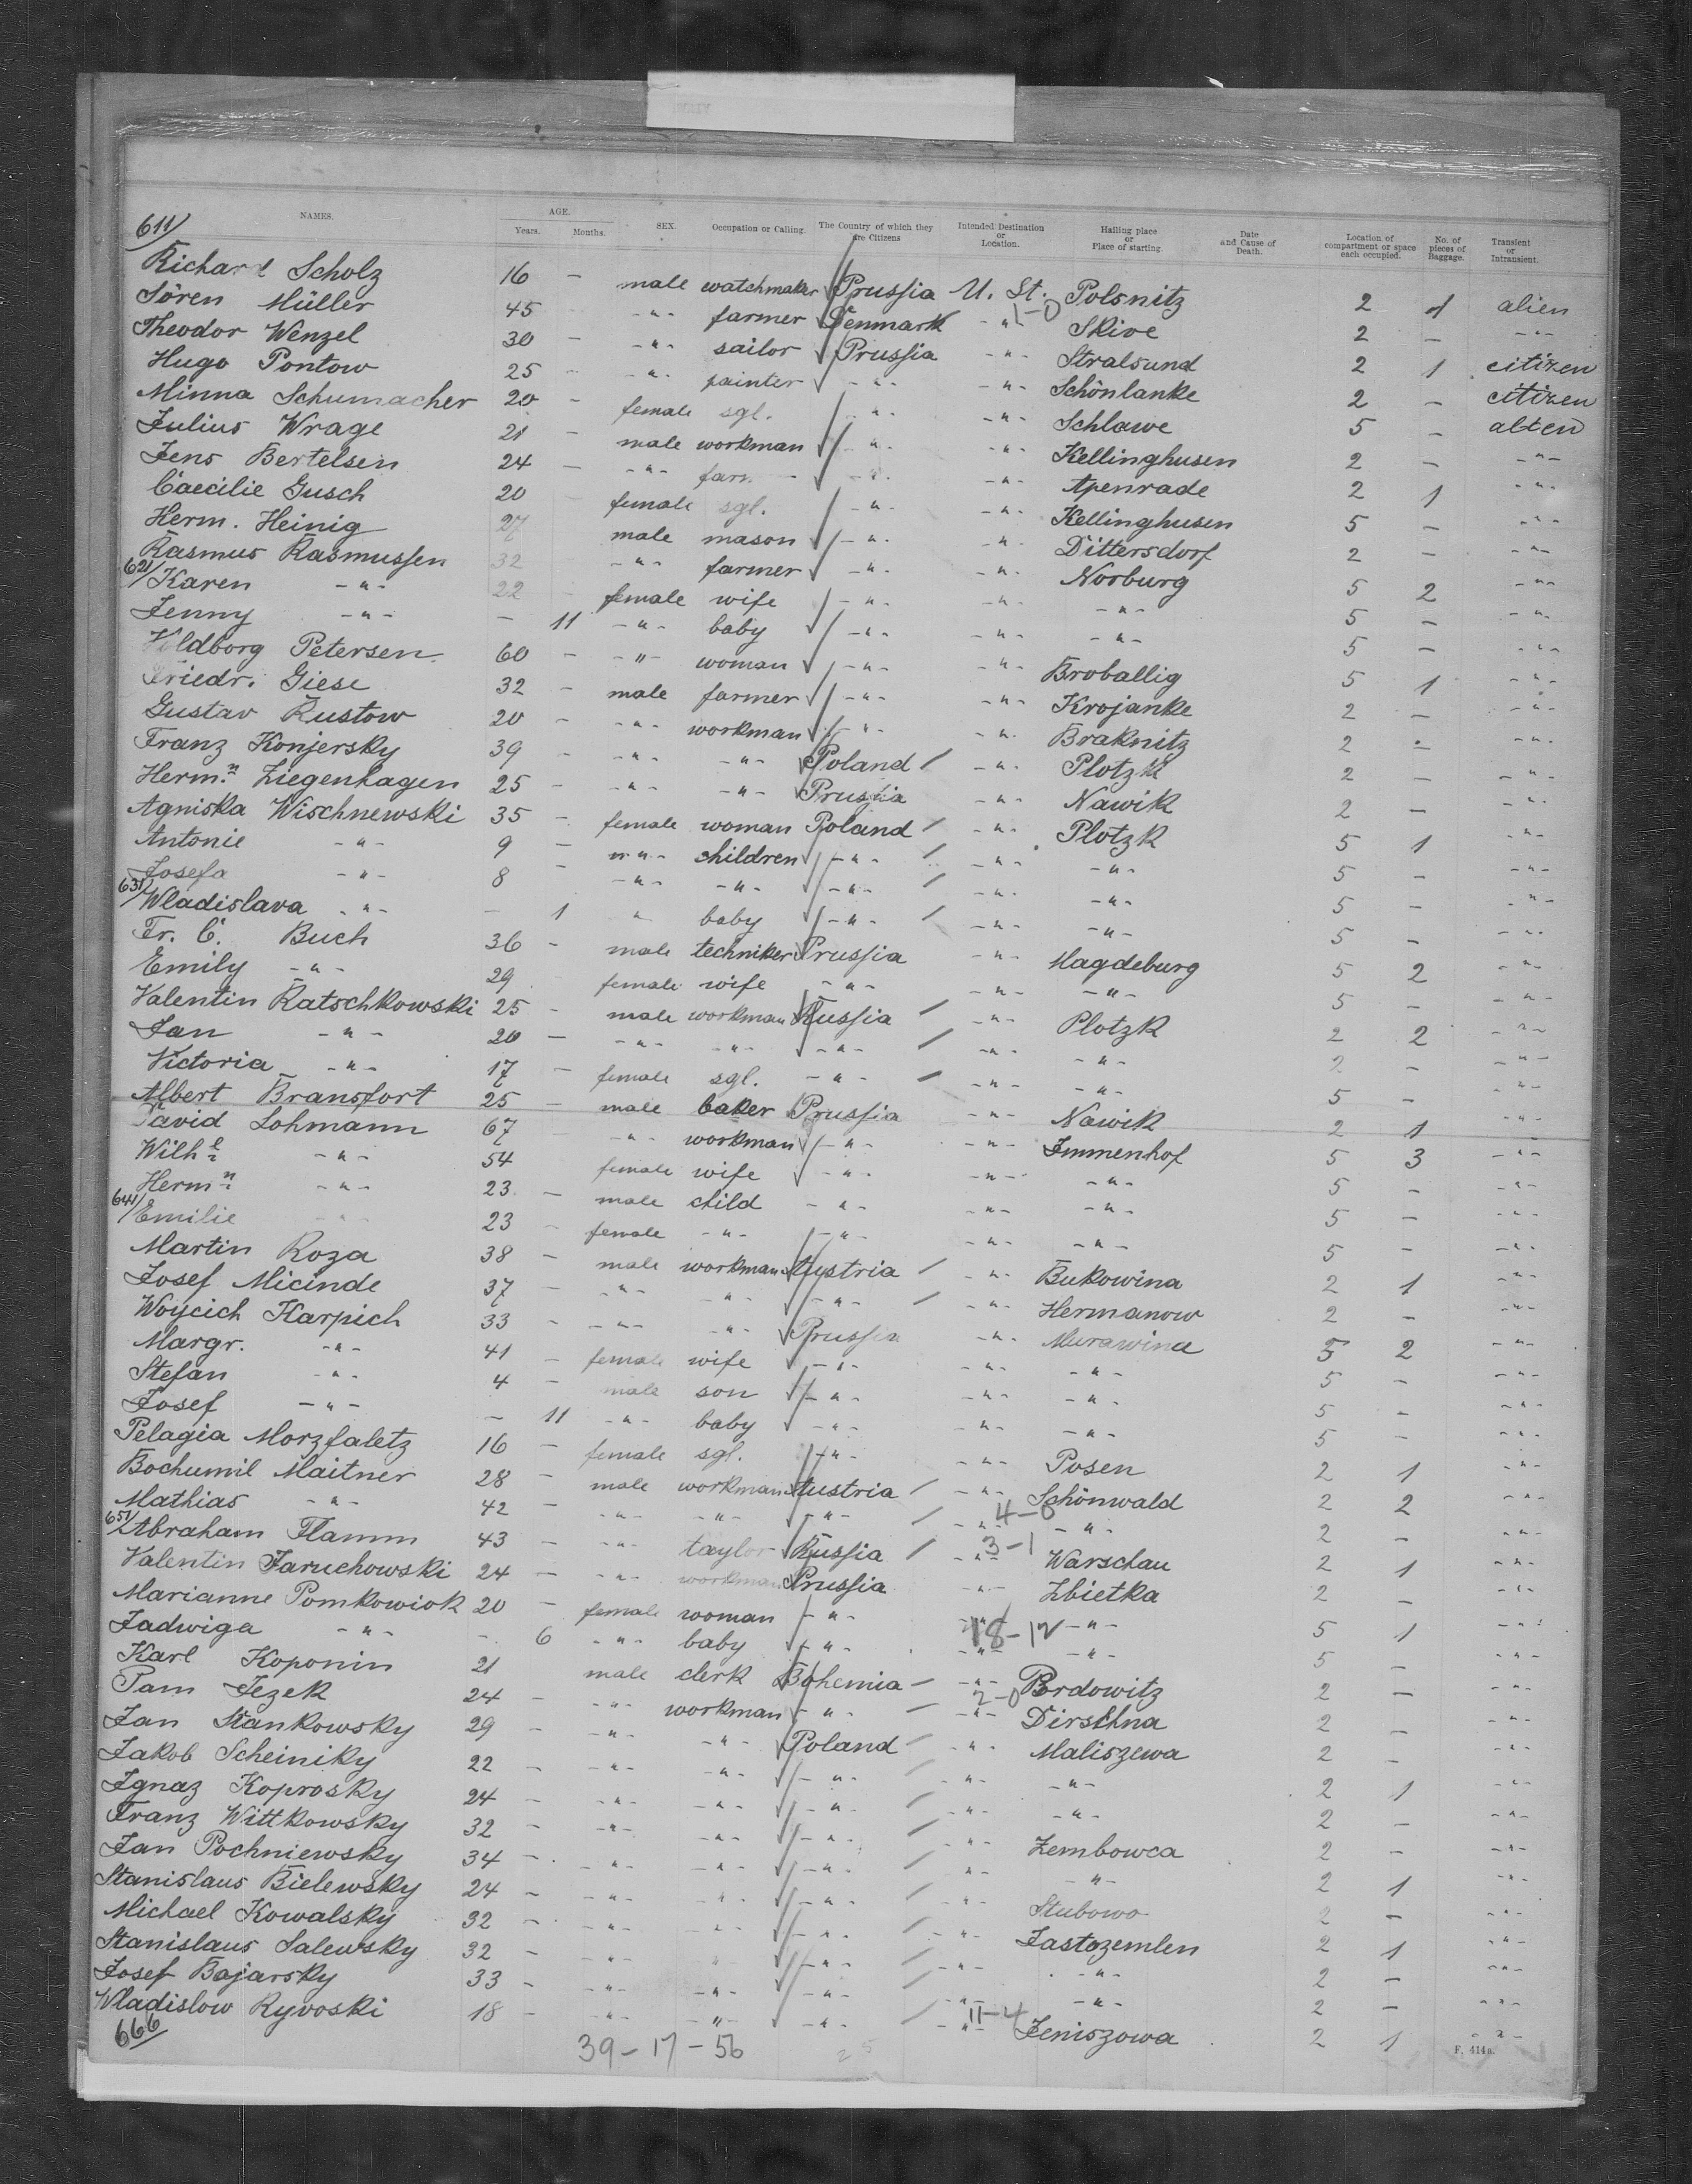 NAMES. AGE. Years. Months. SEX. Occupation or Calling. The Country of which they are Citizens Intended Destination or Location. Hailing place or Place of starting. Date and Cause of Death. Location of compartment or space each occupied. No. of pieces of Baggage. Transient or Intransient.
611/
Richard Scholz 16 — male watchmaker Prussia U. St. Polsnitz 2 1 alien
Sören Müller 45 -"- farmer Denmark -"- 1-0 Skive 2 — -"-
Theodor Wenzel 30 — -"- sailor Prussia -"- Stralsund 2 1 citizen
Hugo Pontow 25 — -"- painter -"- -"- Schönlanke 2 — citizen
Minna Schumacher 20 — female sgl. -"- -"- Schlawe 5 — alien
Julius Wrage 21 — male workman -"- -"- Kellinghusen 2 — -"-
Jens Bertelsen 24 — -"- farm -"- -"- Apenrade 2 1 -"-
Caecilie Gusch 20 female sgl. -"- -"- Kellinghusen 5 — -"-
Herm. Heinig 27 male mason -"- -"- Dittersdorf 2 — -"-
Rasmus Rasmussen 32 -"- farmer -"- -"- Norburg 5 2 -"-
621/ Karen -"- 22 female wife -"- -"- -"- 5 — -"-
Jenny -"- — 11 -"- baby -"- -"- -"- 5 — -"-
Voldborg Petersen 60 — -"- woman -"- -"- Broballig 5 1 -"-
Friedr. Giese 32 — male farmer -"- -"- Krojanke 2 — -"-
Gustav Rustow 20 — -"- workman -"- -"- Braknitz 2 — -"-
Franz Konjersky 39 — -"- -"- Poland / -"- Plotzk 2 — -"-
Hermn Ziegenhagen 25 — -"- -"- Prussia -"- Nawik 2 — -"-
Agniska Wischnewski 35 — female woman Poland / -"- Plotzk 5 1 -"-
Antonie -"- 9 — -"- children -"- / -"- -"- 5 — -"-
Josefa -"- 8 — -"- -"- -"- / -"- -"- 5 — -"-
631/ Wladislava -"- — 1 " baby -"- / -"- -"- 5 — -"-
Fr. C. Buch 36 — male techniker Prussia -"- Magdeburg 5 2 -"-
Emily -"- 29 female wife -"- -"- -"- 5 — -"-
Valentin Ratschkowski 25 — male workman Russia / -"- Plotzk 2 2 -"-
Jan -"- 20 — -"- -"- -"- / -"- -"- 2 — -"-
Victoria -"- 17 — female sgl. -"- / -"- -"- 5 — -"-
Albert Bransfort 25 — male baker Prussia -"- Nawik 2 1 -"-
David Lohmann 67 -"- workman -"- -"- Immenhof 5 3 -"-
Wilhe -"- 54 female wife -"- -"- -"- 5 — -"-
Hermn -"- 23 — male child -"- -"- -"- 5 — -"-
641/ Emilie -"- 23 — female -"- -"- -"- -"- 5 — -"-
Martin Roza 38 — male workman Austria / -"- Bukowina 2 1 -"-
Josef Micinde 37 — -"- -"- -"- / -"- Hermanow 2 — -"-
Woycich Karpich 33 — -"- -"- Prussia -"- Murawina 5 2 -"-
Margr. -"- 41 — female wife -"- -"- -"- 5 — -"-
Stefan -"- 4 — male son -"- -"- -"- 5 — -"-
Josef -"- — 11 -"- baby -"- -"- -"- 5 — -"-
Pelagia Morzfaletz 16 — female sgl. -"- -"- Posen 2 1 -"-
Bochumil Maitner 28 — male workman Austria / -"- Schönwald 2 2 -"-
Mathias -"- 42 — -"- -"- -"- / -"- 4-0 -"- 2 — -"-
651/ Abraham Flamm 43 — -"- taylor Russia / -"- 3-1 Warschau 2 1 -"-
Valentin Jaruchowski 24 — -"- workman Prussia -"- Zbietka 2 — -"-
Marianne Pomkowiok 20 — female woman -"- -"- 18-12 -"- 5 1 -"-
Jadwiga -"- — 6 -"- baby -"- -"- -"- 5 — -"-
Karl Koponin 21 male clerk Bohemia — -"- 2-0 Bordowitz 2 — -"-
Pam Jezek 24 — -"- workman -"- / -"- Dirschna 2 — -"-
Jan Stankowsky 29 — -"- -"- Poland / -"- Maliszewa 2 — -"-
Jakob Scheiniky 22 — -"- -"- -"- / -"- -"- 2 1 -"-
Ignaz Koprosky 24 — -"- -"- -"- / -"- -"- 2 — -"-
Franz Wittkowsky 32 — -"- -"- -"- / -"- Zembowca 2 — -"-
Jan Pochniewsky 34 — -"- -"- -"- / -"- -"- 2 1 -"-
Stanislaus Bielewsky 24 — -"- -"- -"- / -"- Stubowo 2 — -"-
Michael Kowalsky 32 — -"- -"- -"- / -"- Jastozemlen 2 1 -"-
Stanislaus Salewsky 32 — -"- " -"- / -"- -"- 2 — -"-
Josef Bajarsky 33 — -"- -"- -"- / -"- -"- 2 — -"-
Wladislow Ryvoski 18 — -"- -"- -"- / -"- 11-4 Jeniszowa 2 1 -"-
666
39-17-56
F. 414a.